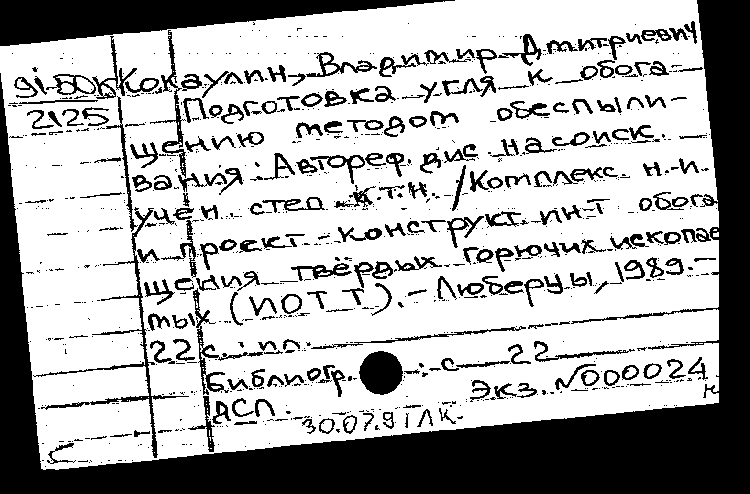 91-БОК Кокаулин, Владимир Дмитриевич
2125 Подготовка угля к обога-
щению методом обеспыли-
вания: Автореф. дис. на соиск.
учен. степ. к.т.н. / Комплекс. н.-и.
и проект.-конструкт. ин-т обога
щения твёрдых горючих ископае
мых (ИОТТ). - Люберцы, 1989. -
22 с. : ил.
Библиогр. : с 22
ДСП. Экз. №000024
30.07.91 ЛК.